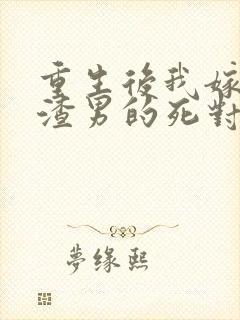 重生後我嫁
渣男的死對
夢缘熙